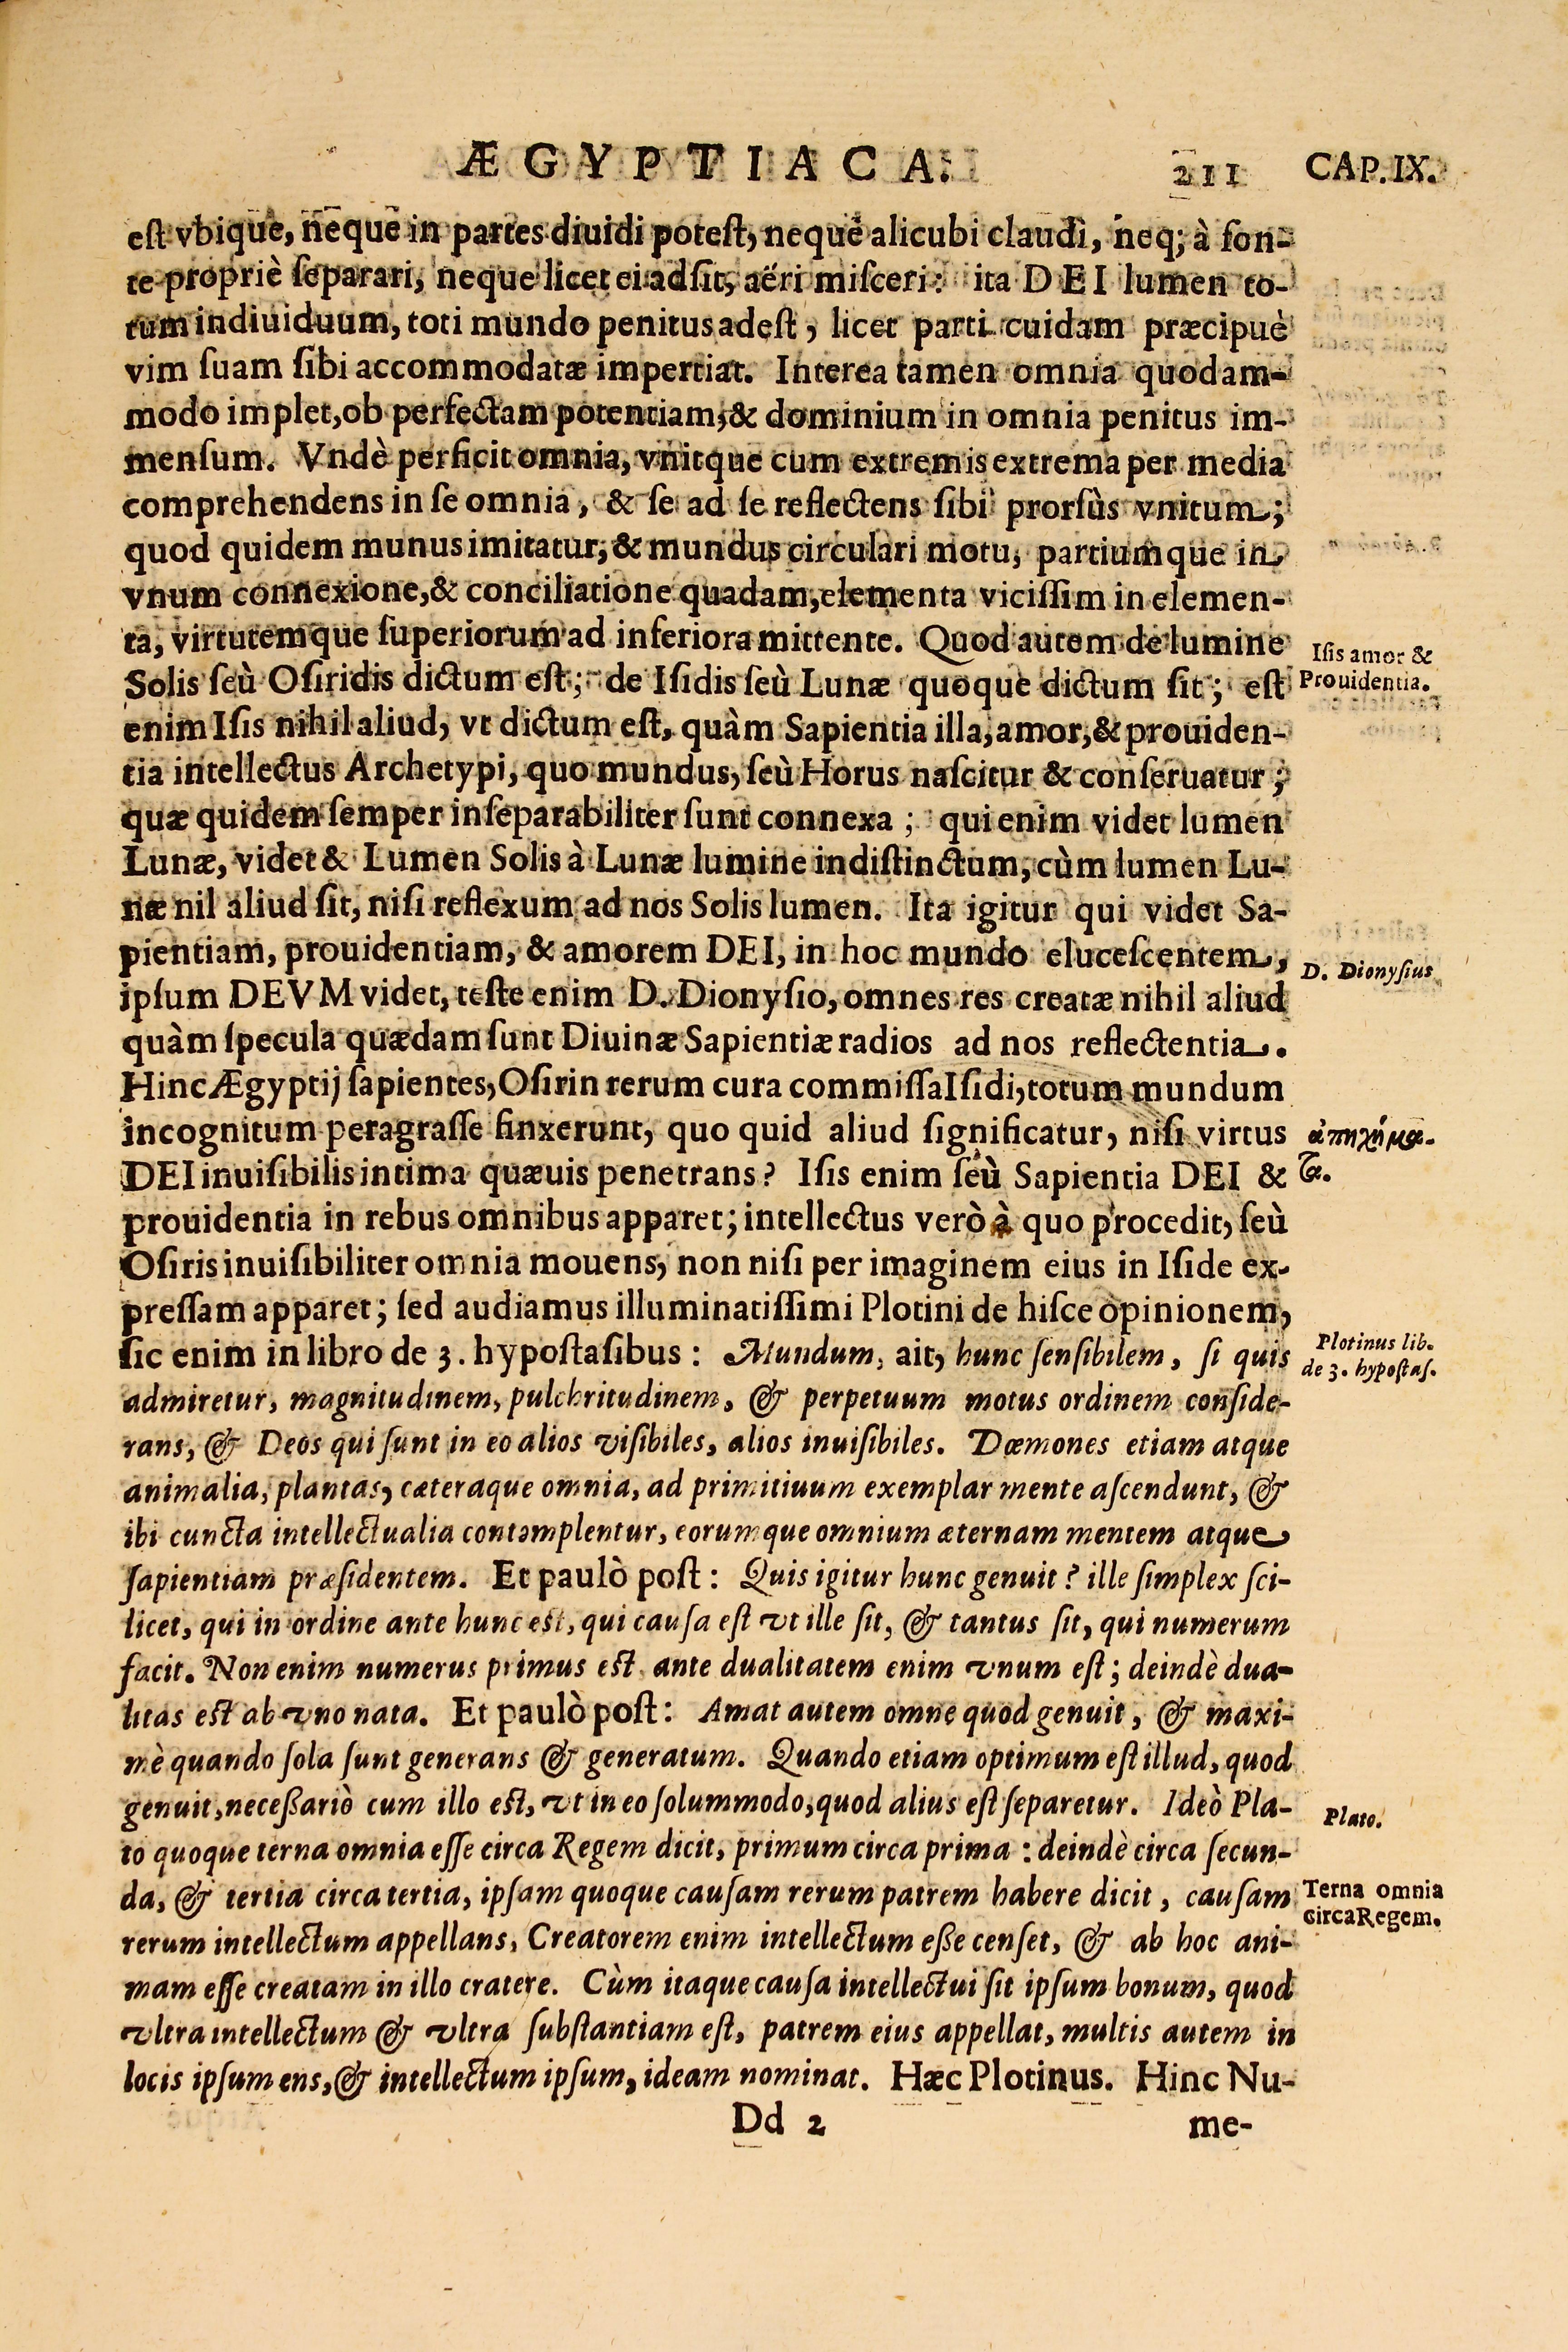 ÆGYPTIACA. 211 CAP. IX.
est vbique, neque in partes diuidi potest, neque alicubi claudi, neq; à fon-
te propriè separari, neque licet ei adsit, aëri misceri: ita DEI lumen to-
tum indiuiduum, toti mundo penitus adest, licet parti cuidam præcipuè
vim suam sibi accommodatæ impertiat. Interea tamen omnia quodam-
modo implet, ob perfectam potentiam, & dominium in omnia penitus im-
mensum. Vndè perficit omnia, vnitque cum extremis extrema per media
comprehendens in se omnia, & se ad se reflectens sibi prorsùs vnitum;
quod quidem munus imitatur, & mundus circulari motu, partiumque in
vnum connexione, & conciliatione quadam, elementa vicissim in elemen-
ta, virtutemque superiorum ad inferiora mittente. Quod autem de lumine
Solis seù Osiridis dictum est; de Isidis seù Lunæ quoque dictum sit; est
Isis amor &
Prouidentia.
enim Isis nihil aliud, vt dictum est, quàm Sapientia illa, amor, & prouiden-
tia intellectus Archetypi, quo mundus, seù Horus nascitur & conseruatur;
quæ quidem semper inseparabiliter sunt connexa; qui enim videt lumen
Lunæ, videt & Lumen Solis à Lunæ lumine indistinctum, cùm lumen Lu-
næ nil aliud sit, nisi reflexum ad nos Solis lumen. Ita igitur qui videt Sa-
pientiam, prouidentiam, & amorem DEI, in hoc mundo elucescentem,
D. Dionysius
ipsum DEVM videt, teste enim D. Dionysio, omnes res creatæ nihil aliud
quàm specula quædam sunt Diuinæ Sapientiæ radios ad nos reflectentia.
Hinc Ægyptij sapientes, Osirin rerum cura commissa Isidi, totum mundum
incognitum peragrasse finxerunt, quo quid aliud significatur, nisi virtus
ἀπηχήμα-
τα.
DEI inuisibilis intima quæuis penetrans? Isis enim seù Sapientia DEI &
prouidentia in rebus omnibus apparet; intellectus verò à quo procedit, seù
Osiris inuisibiliter omnia mouens, non nisi per imaginem eius in Iside ex-
pressam apparet; sed audiamus illuminatissimi Plotini de hisce opinionem,
sic enim in libro de 3. hypostasibus: Mundum, ait, hunc sensibilem, si quis
Plotinus lib.
de 3. hypostas.
admiretur, magnitudinem, pulchritudinem, & perpetuum motus ordinem conside-
rans, & Deos qui sunt in eo alios visibiles, alios inuisibiles. Dæmones etiam atque
animalia, plantas, cæteraque omnia, ad primitiuum exemplar mente ascendunt, &
ibi cuncta intellectualia contemplentur, eorumque omnium æternam mentem atque
sapientiam præsidentem. Et paulò post: Quis igitur hunc genuit? ille simplex sci-
licet, qui in ordine ante hunc est, qui causa est vt ille sit, & tantus sit, qui numerum
facit. Non enim numerus primus est ante dualitatem enim vnum est; deindè dua-
litas est ab vno nata. Et paulò post: Amat autem omne quod genuit, & maxi-
mè quando sola sunt generans & generatum. Quando etiam optimum est illud, quod
genuit, necessariò cum illo est, vt in eo solummodo, quod alius est separetur. Ideò Pla-
Plato.
to quoque terna omnia esse circa Regem dicit, primum circa prima: deindè circa secun-
da, & tertia circa tertia, ipsam quoque causam rerum patrem habere dicit, causam
Terna omnia
circa Regem.
rerum intellectum appellans, Creatorem enim intellectum esse censet, & ab hoc ani-
mam esse creatam in illo cratere. Cùm itaque causa intellectui sit ipsum bonum, quod
vltra intellectum & vltra substantiam est, patrem eius appellat, multis autem in
locis ipsum ens, & intellectum ipsum, ideam nominat. Hæc Plotinus. Hinc Nu-
Dd 2 me-